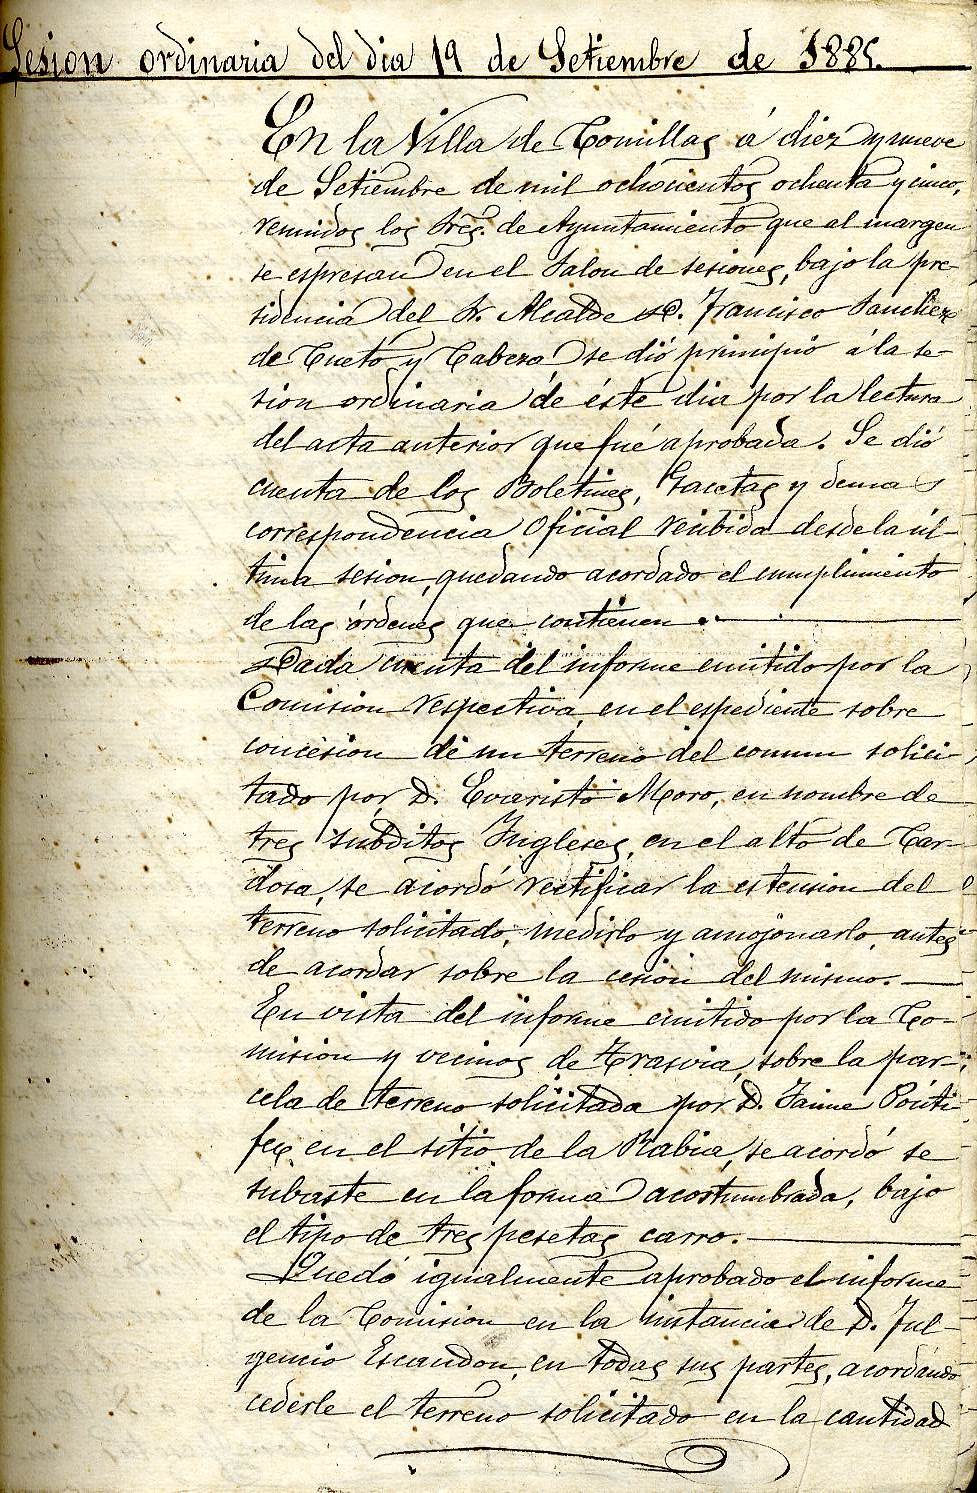 Sesion ordinaria del dia 19 de Setiembre de 1885.
En la Villa de Comillas á diez y nueve
de Setiembre de mil ochocientos ochenta y cinco,
reunidos los Sres. de Ayuntamiento que al margen
se espresan en el Salon de sesiones, bajo la pre-
sidencia del Sr. Alcalde D. Francisco Sanchez
de Cueto y Cabeza, se dió principio á la se-
sion ordinaria de éste dia por la lectura
del acta anterior que fué aprobada. Se dió
cuenta de los Boletines, Gacetas y demas
correspondencia Oficial recibida desde la úl-
tima sesion, quedando acordado el cumplimiento
de las órdenes que contienen.
Dada cuenta del informe emitido por la
Comision respectiva, en el espediente sobre
concesion de un terreno del comun solici-
tado por D. Evaristo Moro, en nombre de
tres subditos Ingleses, en el alto de Car-
dosa, se acordó rectificar la estension del
terreno solicitado, medirlo y amojonarlo, antes
de acordar sobre la cesion del mismo.
En vista del informe emitido por la Co-
mision y vecinos de Trasvia, sobre la par-
cela de terreno solicitada por D. Jaime Pónti-
fex en el sitio de la Rabia, se acordó se
subaste en la forma acostumbrada, bajo
el tipo de tres pesetas carro.
Quedó igualmente aprobado el informe
de la Comision en la instancia de D. Ful-
gencio Escandon, en todas sus partes, acordando
cederle el terreno solicitado en la cantidad